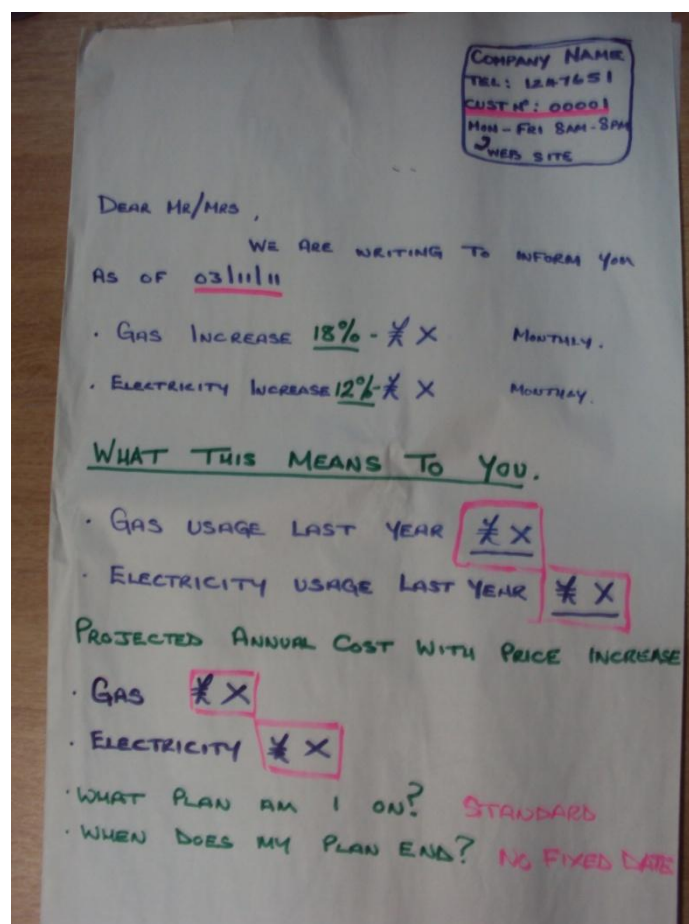 COMPANY NAME
TEL: 1247651
CUST Nº: 00001
MON - FRI 8AM - 8PM
WEB SITE
DEAR MR/MRS,
WE ARE WRITING TO INFORM YOU
AS OF 03/11/11
· GAS INCREASE 18% - X MONTHLY.
· ELECTRICITY INCREASE 12% - X MONTHLY.
WHAT THIS MEANS TO YOU.
· GAS USAGE LAST YEAR X
· ELECTRICITY USAGE LAST YEAR X
PROJECTED ANNUAL COST WITH PRICE INCREASE
· GAS X
· ELECTRICITY X
· WHAT PLAN AM I ON? STANDARD
· WHEN DOES MY PLAN END? NO FIXED DATE